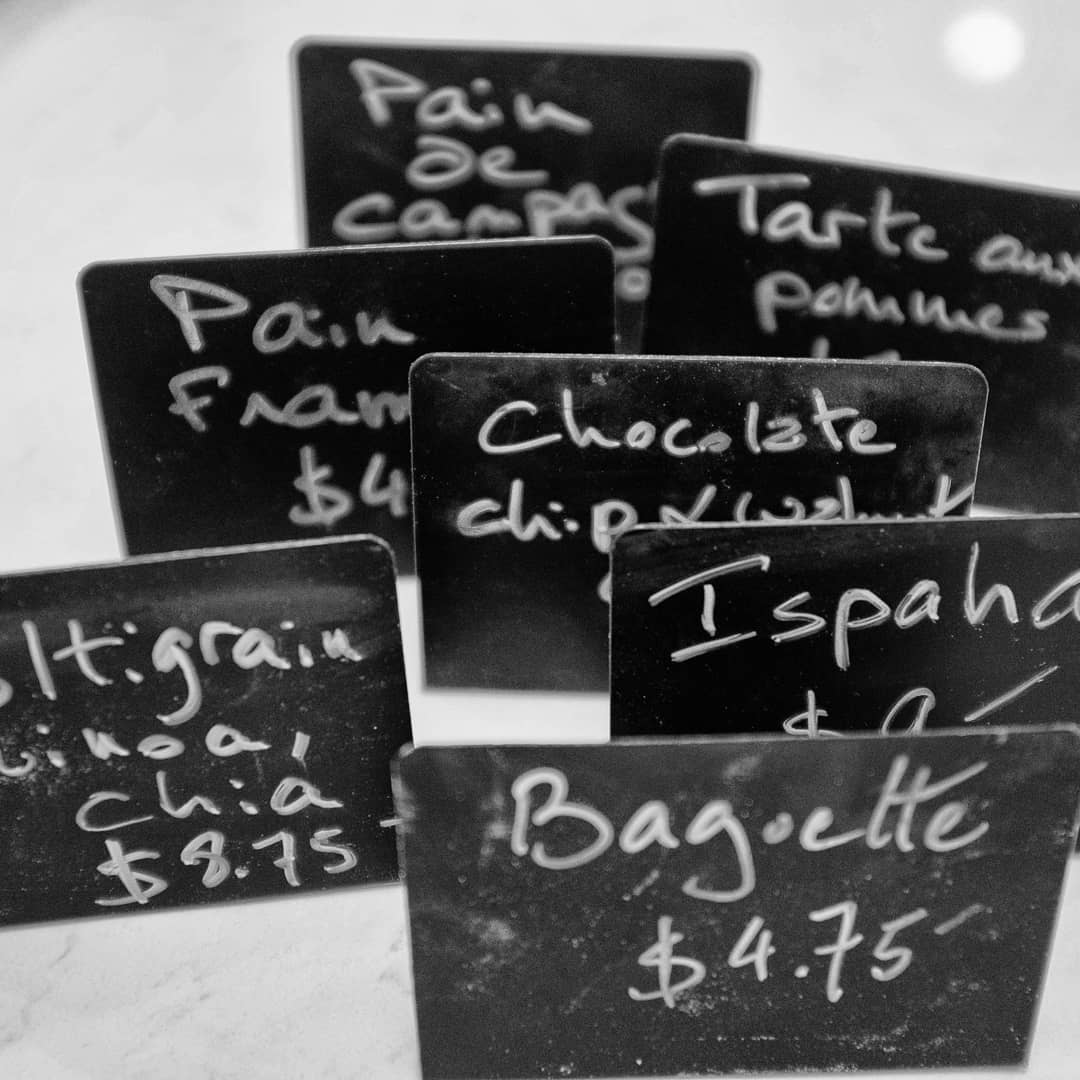 Pain
de
campag
Tarte aux
pommes
Pain
Fram
$4
Chocolate
chip/walnut
Ispaha
$9
ltigrain
inoa,
chia
$8.75
Baguette
$4.75